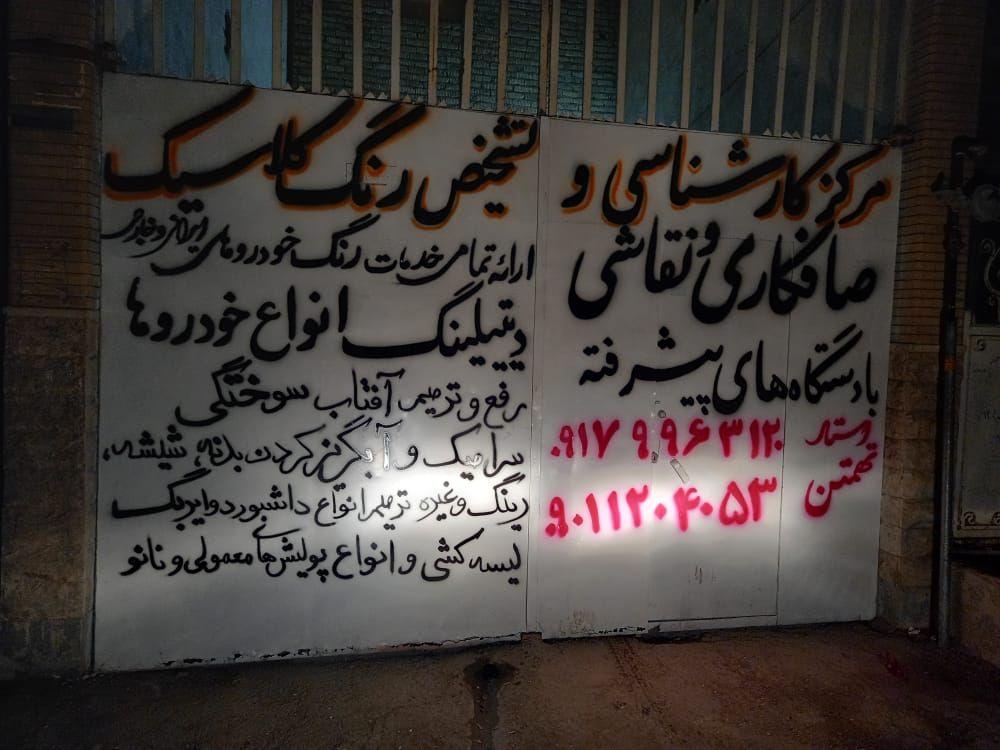 مرکز کارشناسی و
تشخیص رنگ کلاسیک
صافکاری و نقاشی
با دستگاه های پیشرفته
اوستا تهمتن
۰۹۱۷ ۹۹۶ ۳۱۲۰
۰۹۰۱۱۲۰۴۰۵۳
ارائه تمامی خدمات رنگ خودروهای ایرانی و خارجی
دیتیلینگ انواع خودروها
رفع و ترمیم آفتاب سوختگی
سرامیک و آبگریز کردن بدنه، شیشه،
رینگ و غیره ترمیم انواع داشبورد و ایربگ
لیسه کشی و انواع پولیش های معمولی و نانو